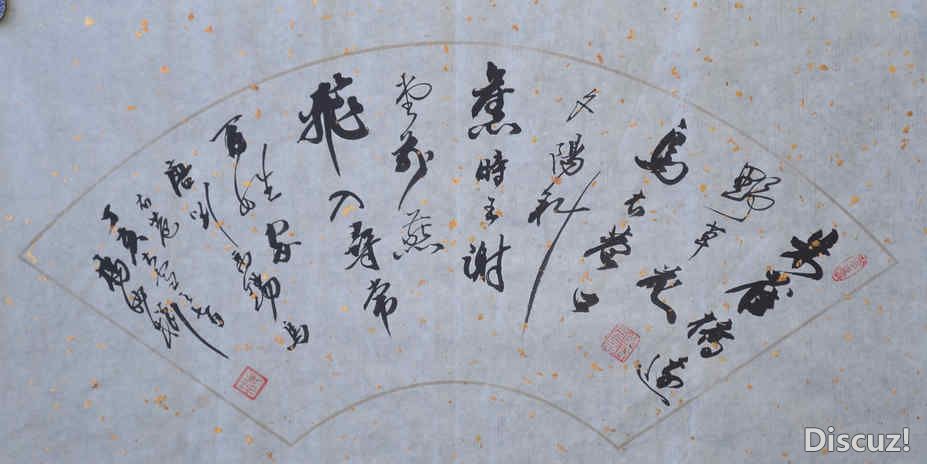 朱雀橋邊
野草花
烏衣巷口
夕陽斜
舊時王謝
堂前燕
飛入尋常
百姓家
唐劉禹锡烏
衣巷
丁亥
Discuz!